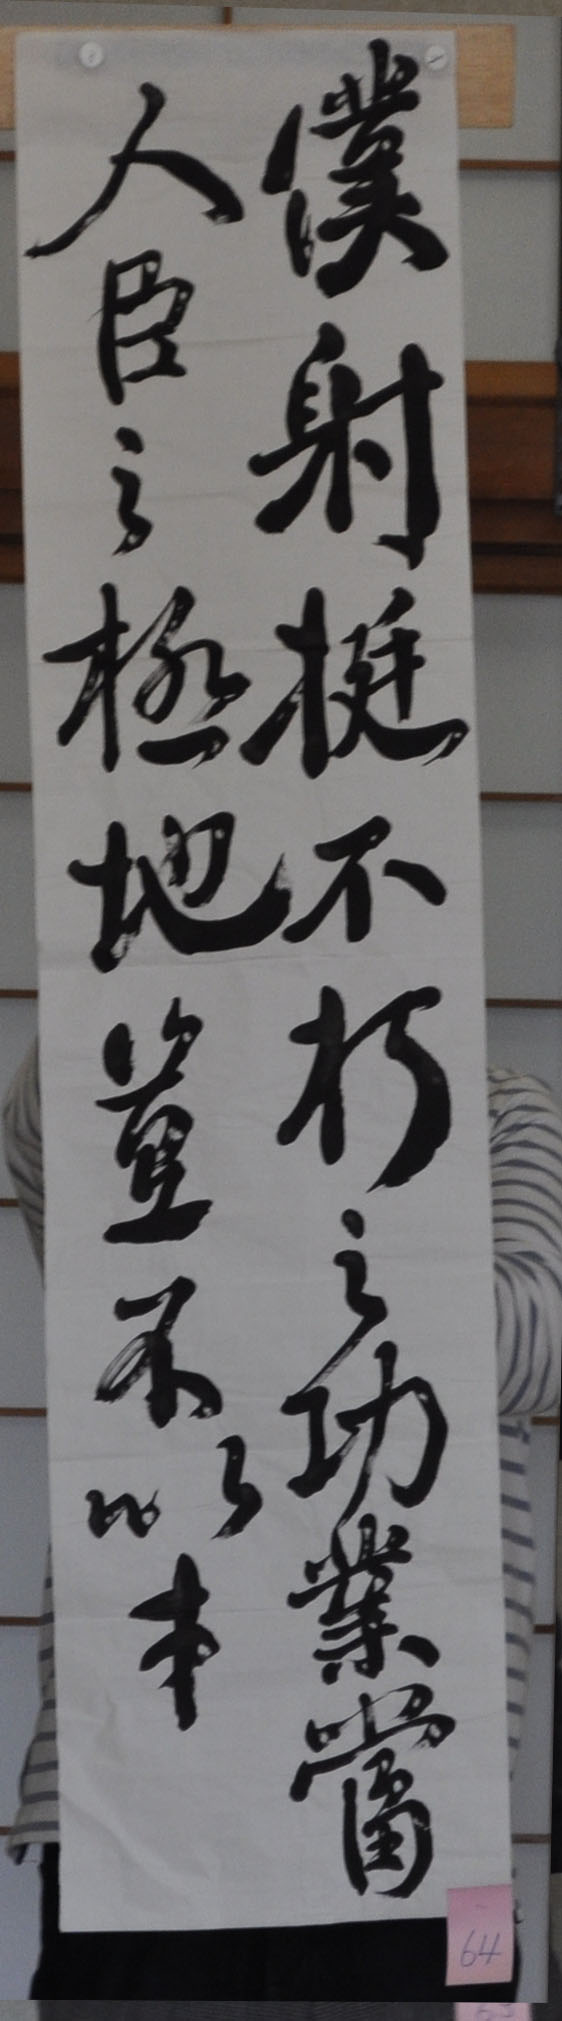 僕射挺不朽之功業當
人臣之極地豈不以才
64